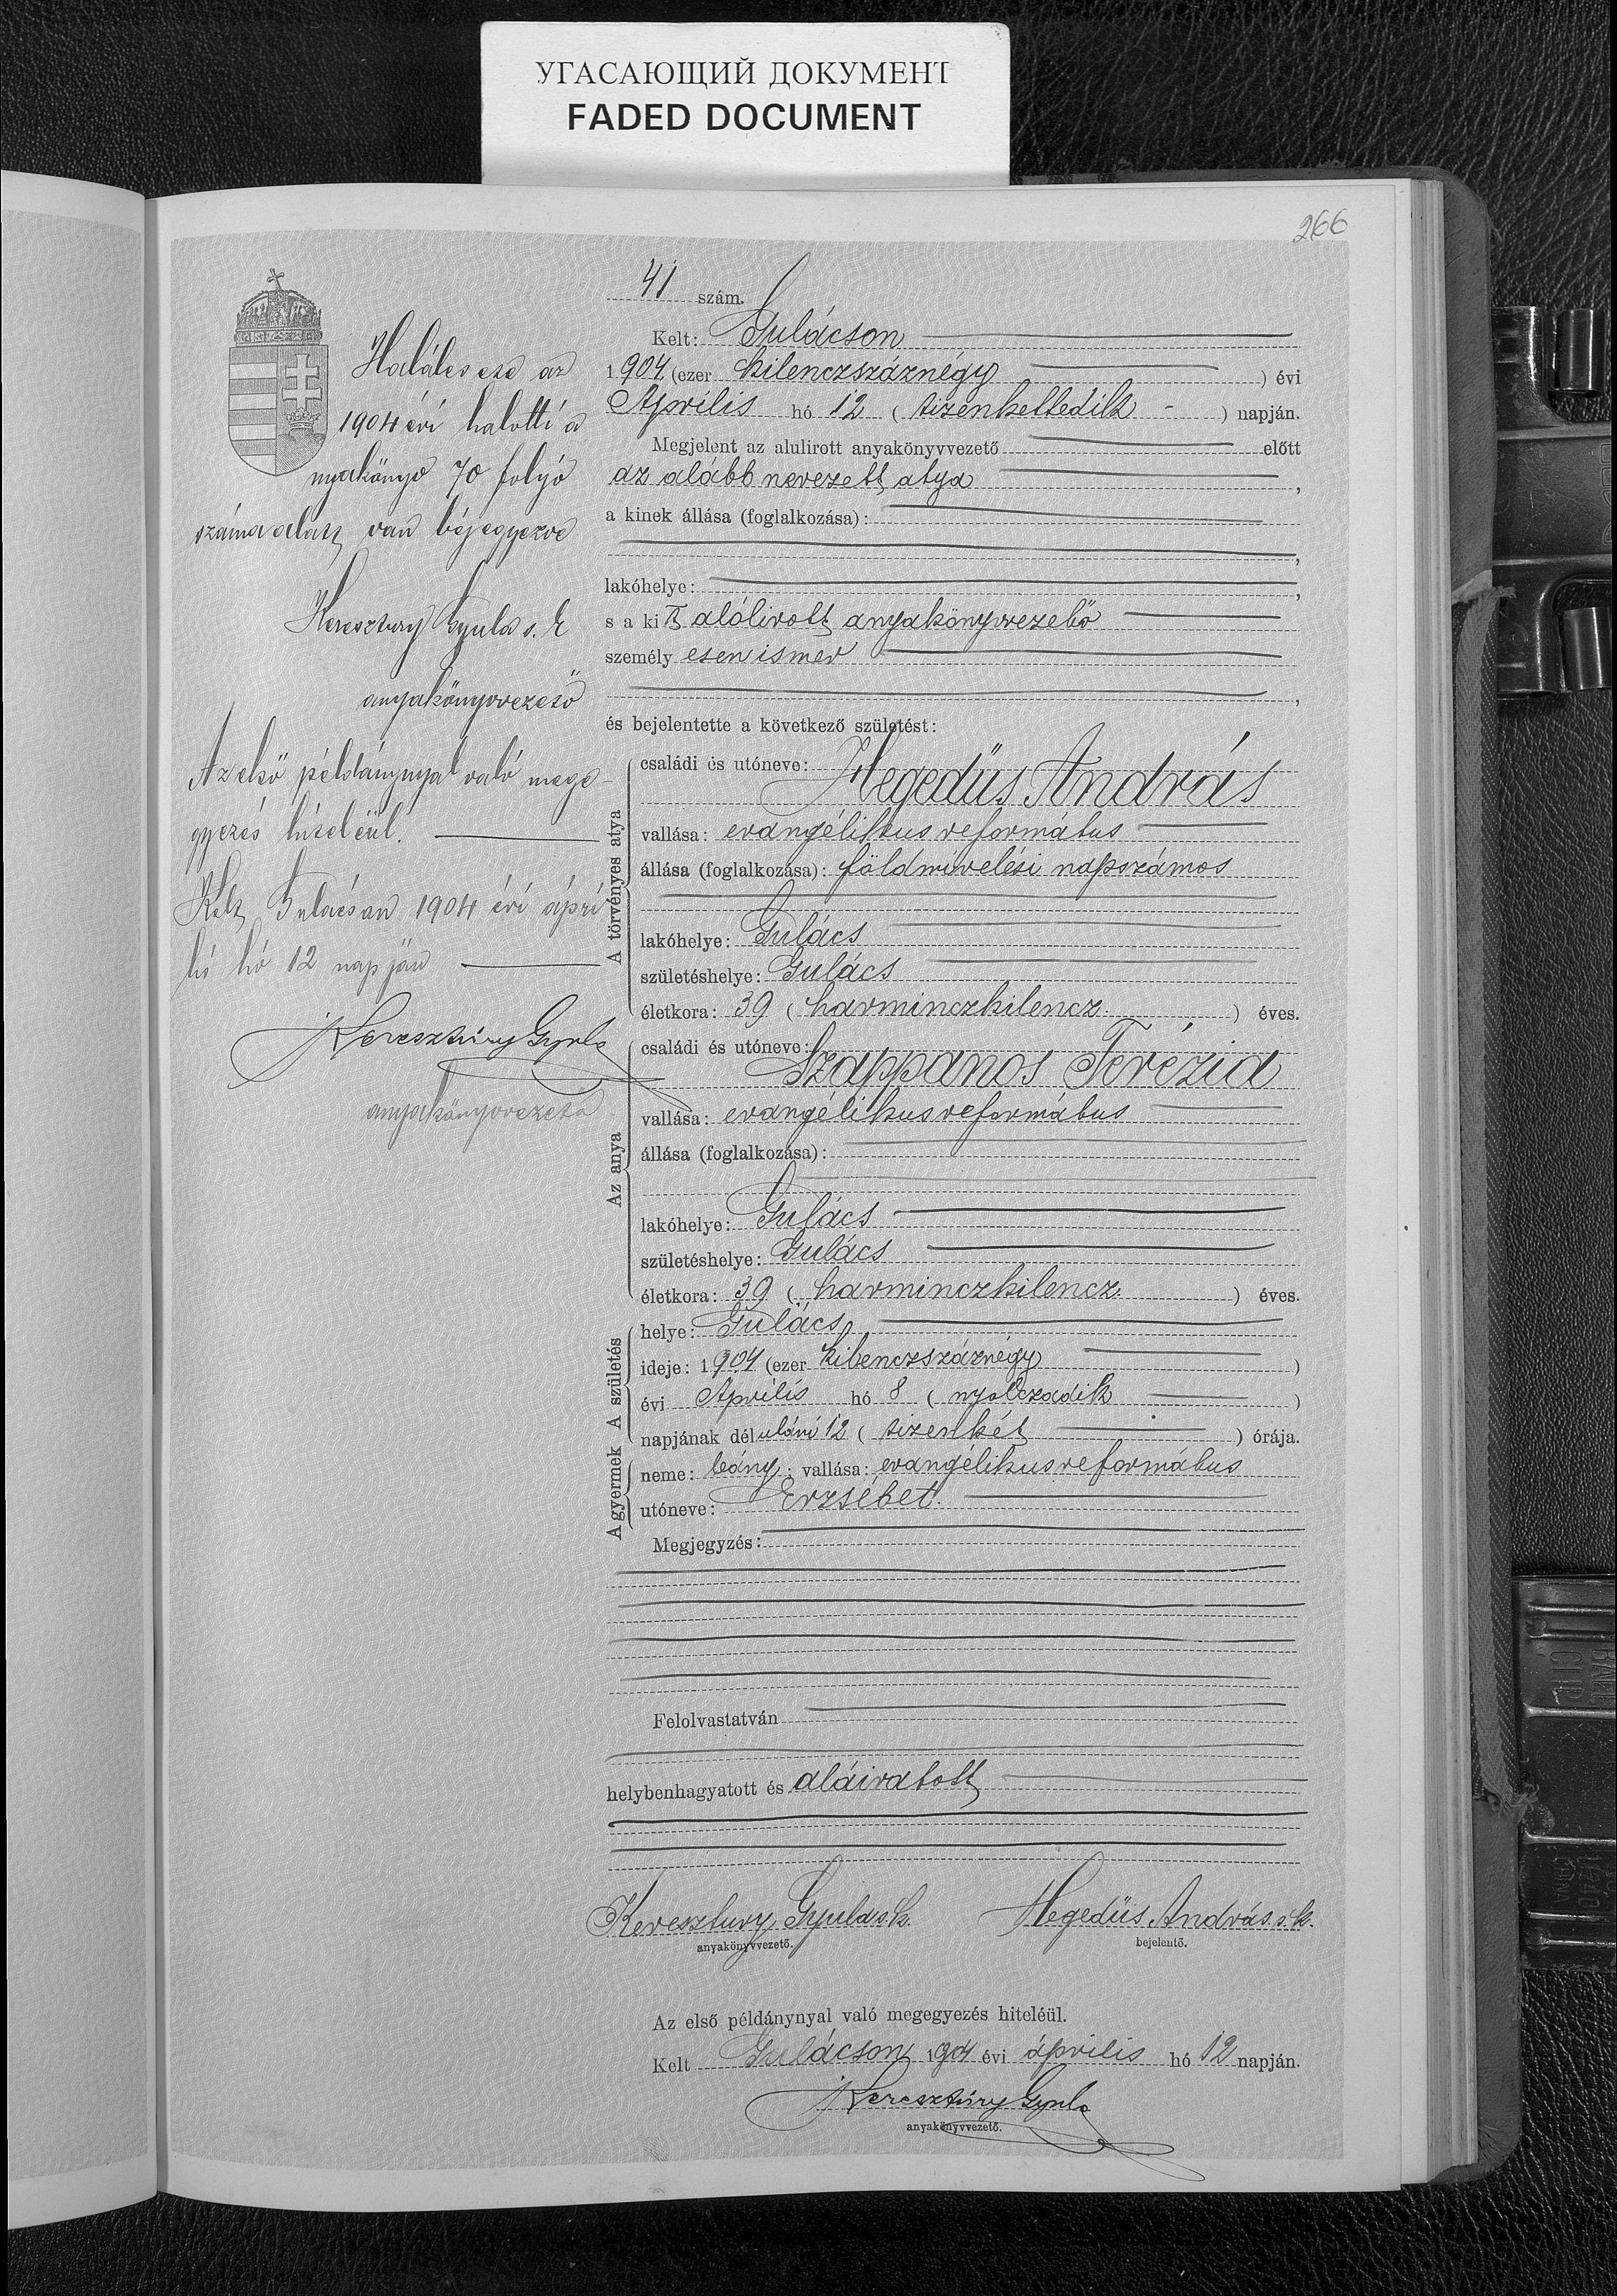 УГАСАЮЩИЙ ДОКУМЕНТ
FADED DOCUMENT
266
41 szám.
Kelt: Gulácson
1904 (ezer kilenczszáznégy) évi
Április hó 12 (tizenkettedik - ) napján.
Megjelent az alulirott anyakönyvvezető előtt
az alább nevezett atya,
a kinek állása (foglalkozása):
,
lakóhelye: ,
s a kit alólirott anyakönyvvezető
személy esen ismer
,
és bejelentette a következő születést:
A törvényes atya
családi és utóneve:
Hegedüs András
vallása: evangélikus református
állása (foglalkozása): földmivelési napszámos
lakóhelye: Gulács
születéshelye: Gulács
életkora: 39 (harminczkilencz.) éves.
Az anya
családi és utóneve:
Szappanos Terézia
vallása: evangélikus református
állása (foglalkozása):
lakóhelye: Gulács
születéshelye: Gulács
életkora: 39 (harminczkilencz.) éves.
A születés
helye: Gulács
ideje: 1904 (ezer kilenczszáznégy)
évi Április hó 8 (nyolczadik)
napjának délutáni 12 (tizenkét) órája.
A gyermek
neme: leány; vallása: evangélikus református
utóneve: Erzsébet.
Megjegyzés:
Felolvastatván
helybenhagyatott és aláiratott
Keresztury Gyula s.k. Hegedüs András s.k.
anyakönyvvezető. bejelentő.
Az első példánynyal való megegyezés hiteléül.
Kelt Gulácson 1904 évi április hó 12 napján.
Keresztúry Gyula
anyakönyvvezető.
Halálesese az
1904 évi halotti a
nyakönyv 70 folyó
száma alatt van béjegyezve
Keresztury Gyula s. k
anyakönyvvezető
Az első példánynyal való mege-
gyezés hiteléül.
Kelt Gulácsan 1904 évi ápri
lis hó 12 napján
Keresztúry Gyula
anyakönyvvezető